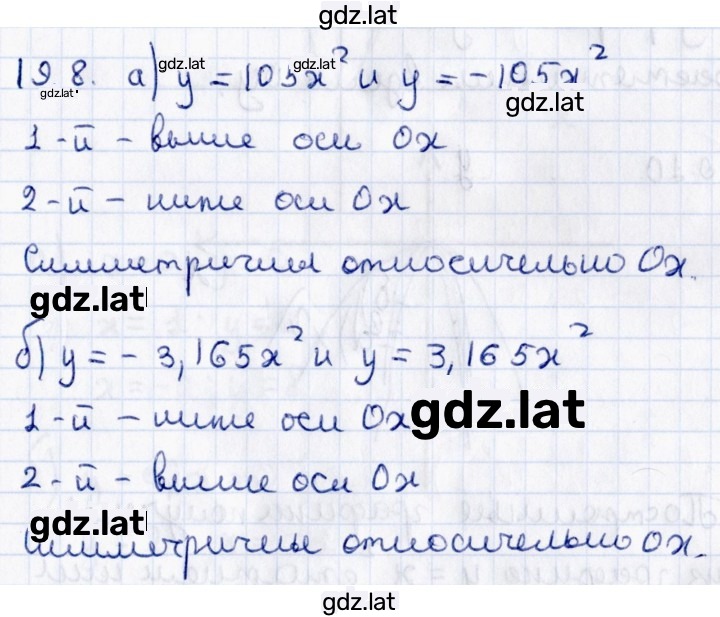 gdz.lat
19.8. а) y = 105x² и y = -105x²
gdz.lat gdz.lat
gdz.lat gdz.lat
1-й - выше оси Ox
2-й - ниже оси Ox
Симметричны относительно Ox.
gdz.lat
б) y = - 3,165x² и y = 3,165x²
1-й - ниже оси Ox
gdz.lat
2-й - выше оси Ox
gdz.lat
Симметричны относительно Ox.
gdz.lat